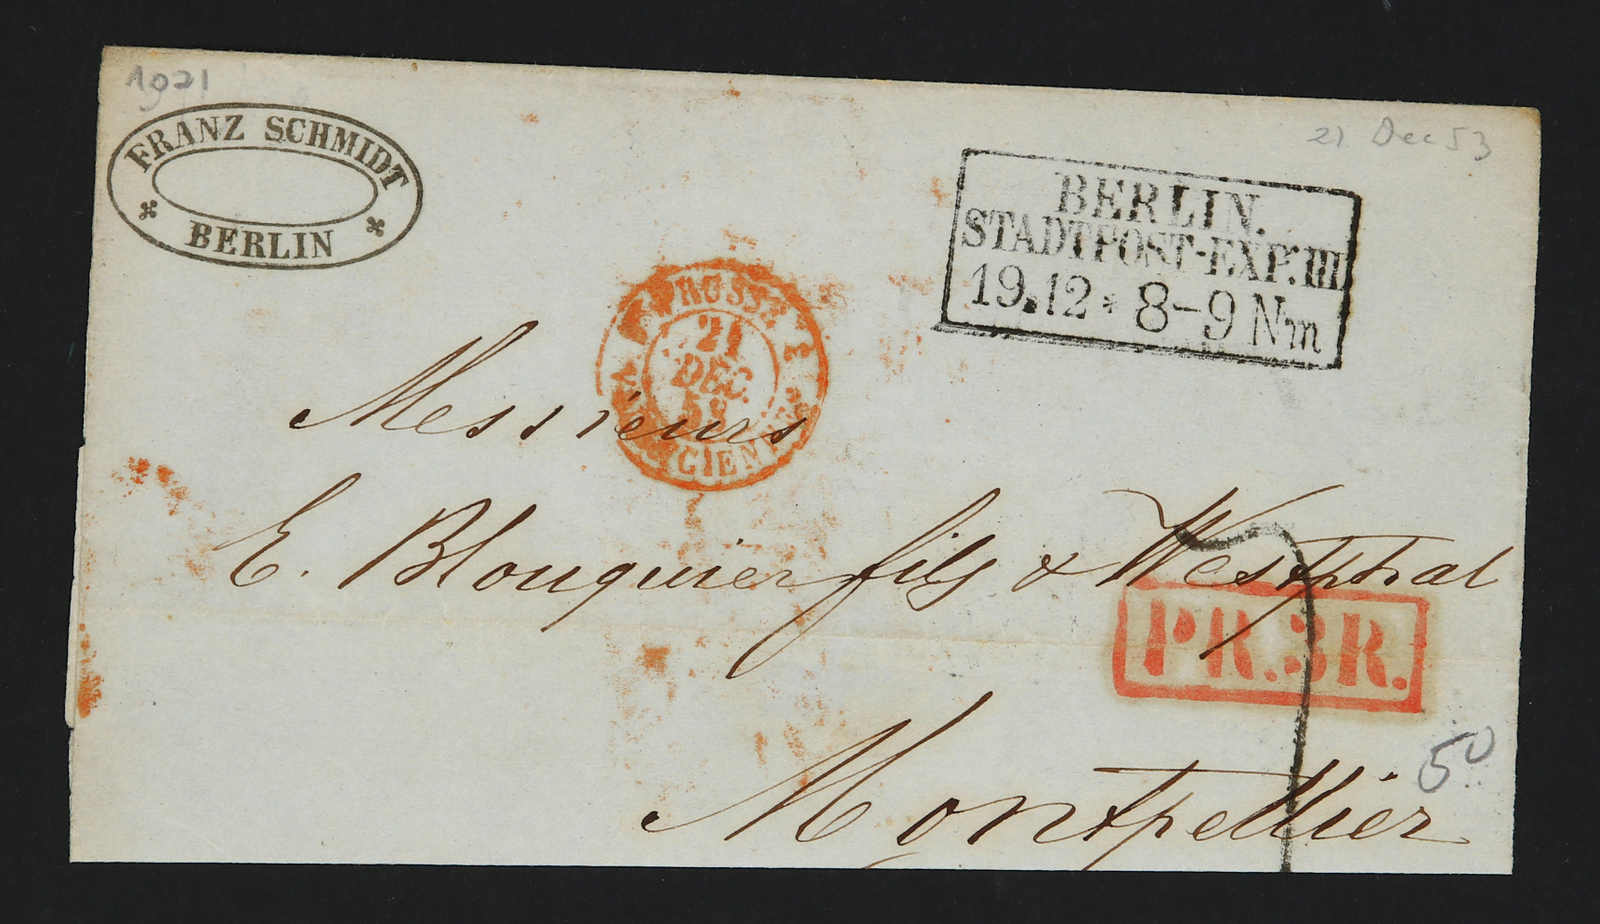 1921
21 Dec 53
FRANZ SCHMIDT
BERLIN
BERLIN.
STADTPOST-EXP. III
19.12 * 8-9 Nm
PRUSSE
21
DEC.
Messieurs
E. Blouquier fils & Westphal
PR.3R.
50
Montpellier